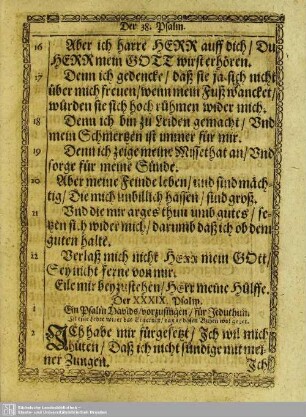 Der 38. Psalm.
16 Aber ich harre HERR auff dich / Du
HERR mein GOTT wirst erhören.
17 Denn ich gedencke / daß sie ja sich nicht
über mich freuen / wenn mein Fuß wancket /
würden sie sich hoch rühmen wider mich.
18 Denn ich bin zu Leiden gemacht / Vnd
mein Schmertzen ist immer für mir.
19 Denn ich zeige meine Missethat an / Vnd
sorge für meine Sünde.
20 Aber meine Feinde leben / und sind mäch-
tig / Die mich unbillich hassen / sind groß.
21 Vnd die mir arges thun umb gutes / se-
tzen sich wider mich / darumb daß ich ob dem
guten halte.
22 Verlaß mich nicht HERR mein GOtt /
Sey nicht ferne von mir.
Eile mir beyzustehen / HErr meine Hülffe.
Der XXXIX. Psalm.
1 Ein Psalm Davids / vorzusingen / für Jeduthun.
2 ICh habe mir fürgesetzt / Ich wil mich
hüten / Daß ich nicht sündige mit mei-
ner Zungen.
Ich